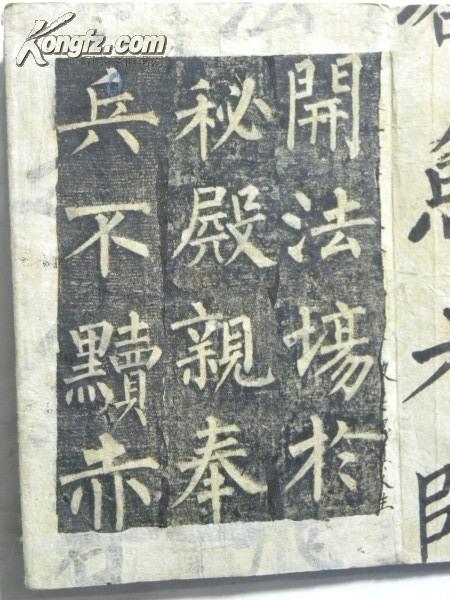 Kongfz.com
開法場於
秘殿親奉
兵不黷赤